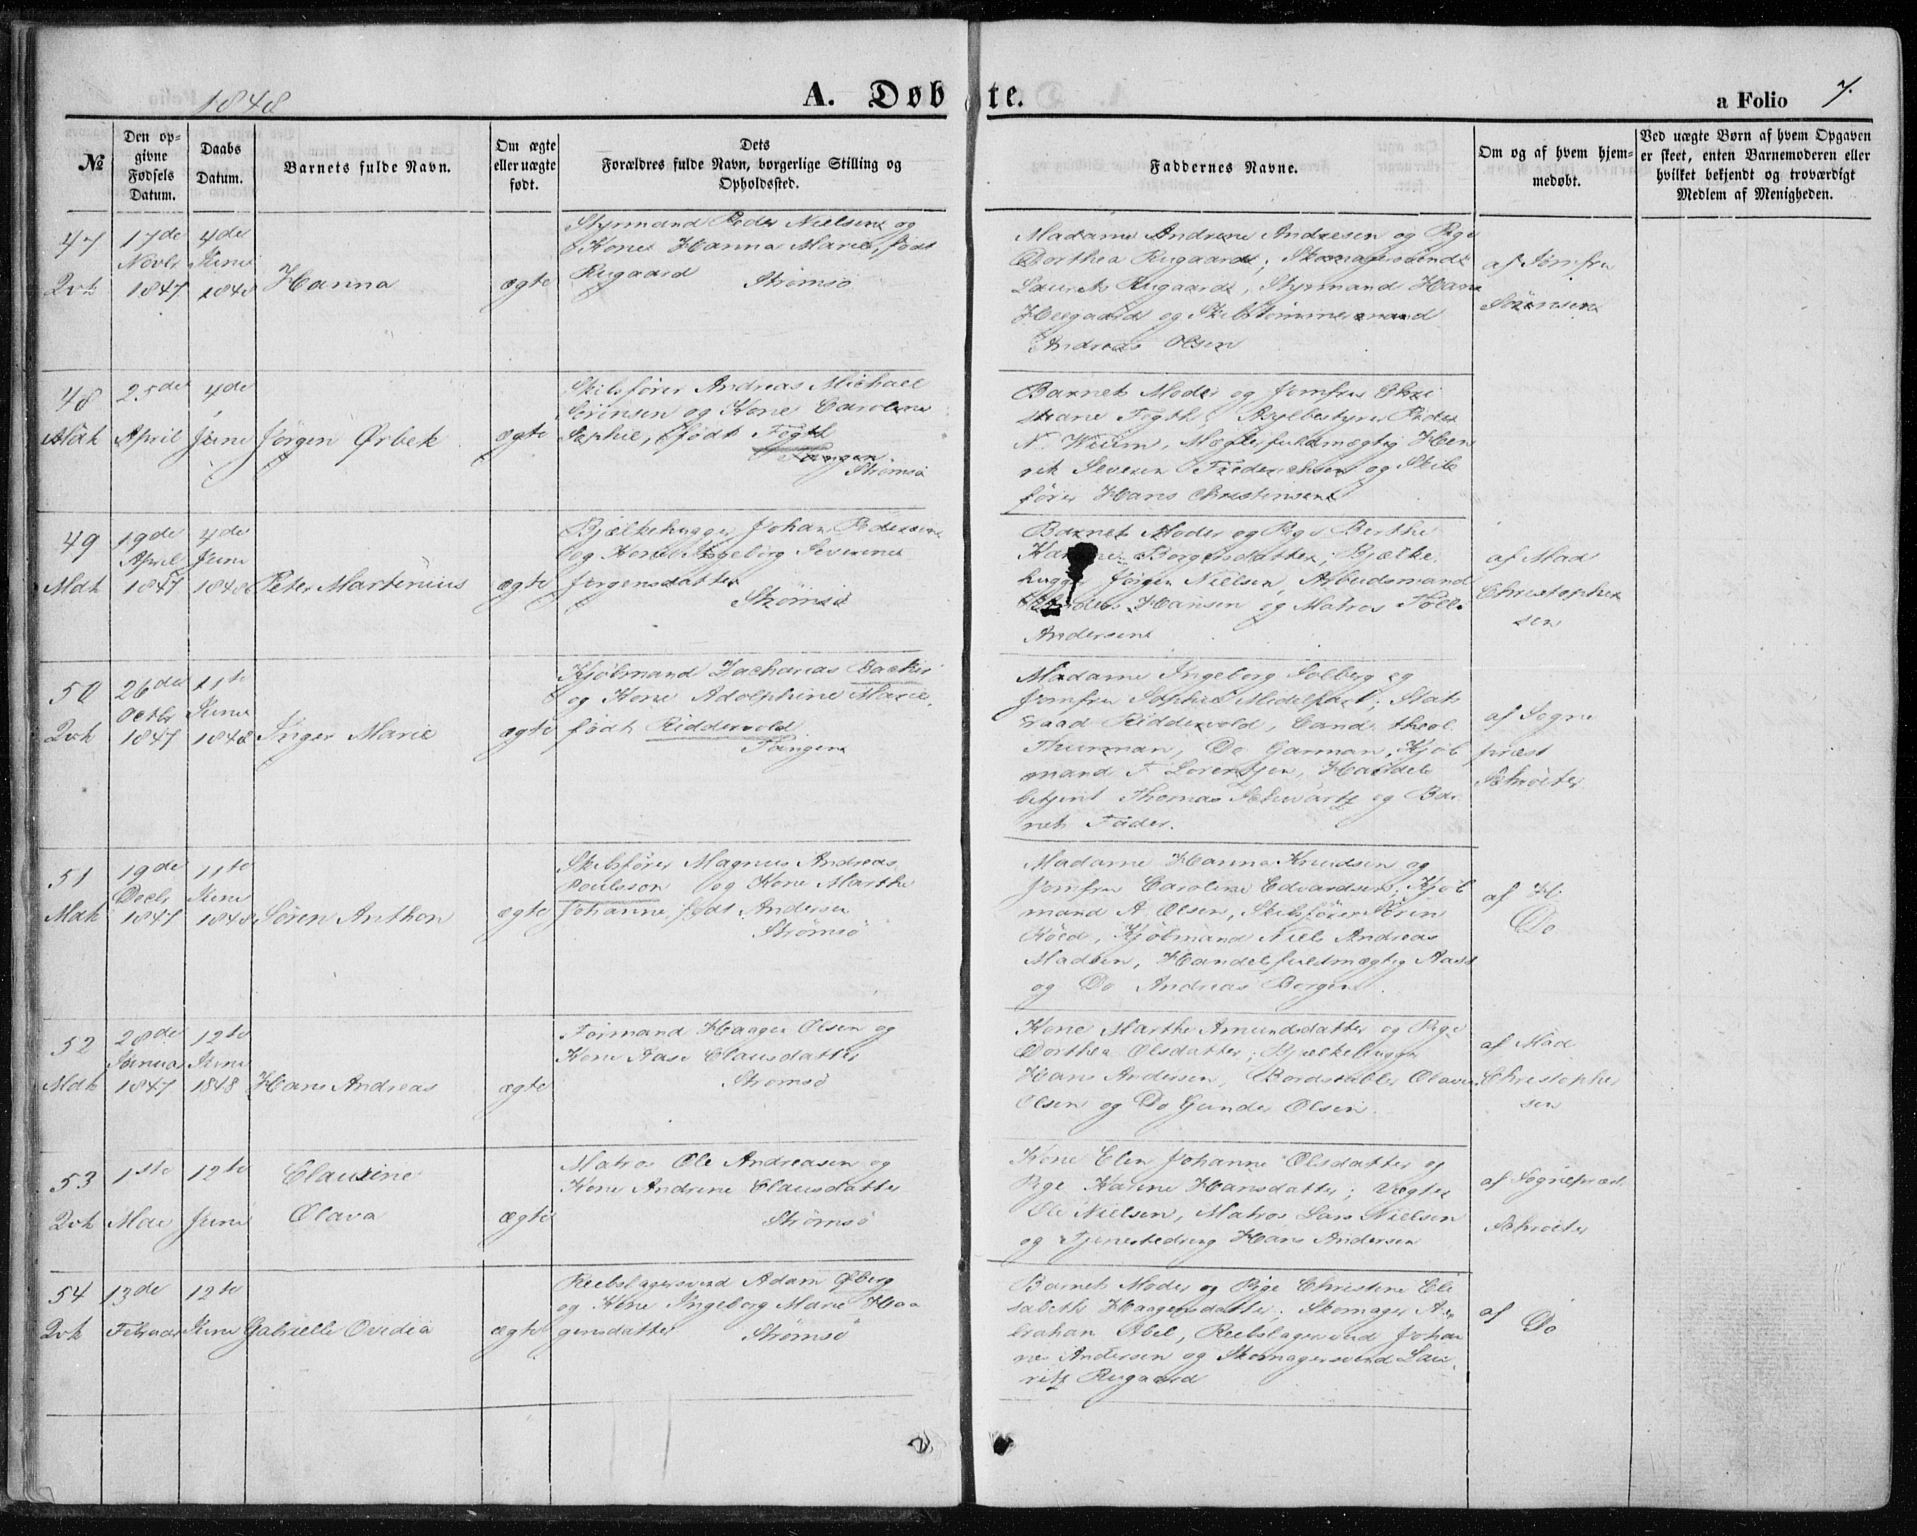 1848
A. Døbte.
a Folio 7.
№
Den opgivne Fødsels Datum.
Daabs Datum.
Barnets fulde Navn.
Om ægte eller uægte født.
Dets Forældres fulde Navn, borgerlige Stilling og Opholdssted.
Faddernes Navne.
Om og af hvem hjemmedøbt.
Ved uægte Børn af hvem Opgaven er skeet, enten Barnemoderen eller hvilket bekjendt og troværdigt Medlem af Menigheden.
47
17de Novbr 1847
4de Juni 1848
Hanna
ægte
Styrmand Peder Nielsen og
Kone Hanna Marie, født
Rugaard
Strømsø
Madame Andrine Andresen og Pige
Dorthea Rugaard; Skomagersvend
Laurits Rugaard, Styrmand Hans
Heegaard og Skibstømmermand
Andreas Olsen
af Jomfru
Sörensen
48
25de April
4de Juni
Jørgen Ørbek
ægte
Skibsfører Andreas Michael
Sörensen og Kone Caroline
Sophie, født Fogth
Tangen.
Strømsø
Barnets Moder og Jomfru Chri
stiane Fogth; Peder
N. Wium, Mæglerfuldmægtig Hen
rik Severin Frederichsen og Skibs
fører Hans Christensen
49
Mdk
19de April 1847
4de Juni 1848
Peter Martinius
ægte
Bjælkehugger Johan Pedersen
og Kone Ingeborg Severine
Jørgensdatter
Strømsø
Barnets Moder og Pige Berthe
Borgersdatter, Bjælke
hugger Jørgen Nielsen, Arbeidsmand
Hansen og Matros
Andersen
af Mad
Christopher
sen
50
26de Octbr 1847
11te Juni 1848
Inger Marie
ægte
Kjøbmand Zacharias Backer
og Kone Adolphine Marie,
født Riddervold
Tangen
Madame Ingeborg Solberg og
Jomfru Sophie Medelfart; Stats
raad Riddervold, Cand. theol.
Thurman, Do Garman, Kjøb
mand F Lorentzen, Handels
betjent Thomas Schwartz og Bar
nets Fader.
af Sogne
præst
Schröter
51
Mdk
19de Decbr 1847
11te Juni 1848
Søren Anthon
ægte
Skibsfører Magnus Andreas
Poulsson og Kone Marthe
Johanne, født Andersen
Strømsø
Madame Hanna Knudsen og
Jomfru Caroline Edvardsen; Kjøb
mand A. Olsen, Skibsfører Sörin
Kjøbmand Niels Andreas
Madsen, Handelsfuldmægtig Aass
og Do Andreas Borgen
af H.
Do
52
Mdk
28de Januar 1847
12te Juni 1848
Hans Andreas
ægte
Formand Haagen Olsen og
Kone Aase Clausdatter
Strømsø
Kone Marthe Amundsdatter og Pige
Dorthea Olsdatter; Bjælkehugger
Hans Andersen, Bordstabler Olaves
Olsen og Do Gunder Olsen.
af Mad
Christopher
sen
53
1ste Mai
12te Juni
Claurine
Olava
ægte
Matros Ole Andreasen og
Kone Andrine Clausdatter
Strømsø
Kone Elen Johanne Olsdatter og
Pige Karine Hansdatter; Vægter
Ole Nielsen, Matros Lars Nielsen
og Tjenestedreng Hans Andersen
af Sognepræst
Schröter
54
13de Februar
12te Juni
Gabrielle Ovedia
ægte
Reebslagersvend Adam Øberg
og Kone Ingeborg Marie Haa
gensdatter
Strømsø
Barnets Moder og Pige Christine Eli
sabeth Haagensdatter. Skomager A
braham Abel, Reebslagersvend Johan
nes Andersen og Skomagersvend Lau
ritz Rugaard
af Do